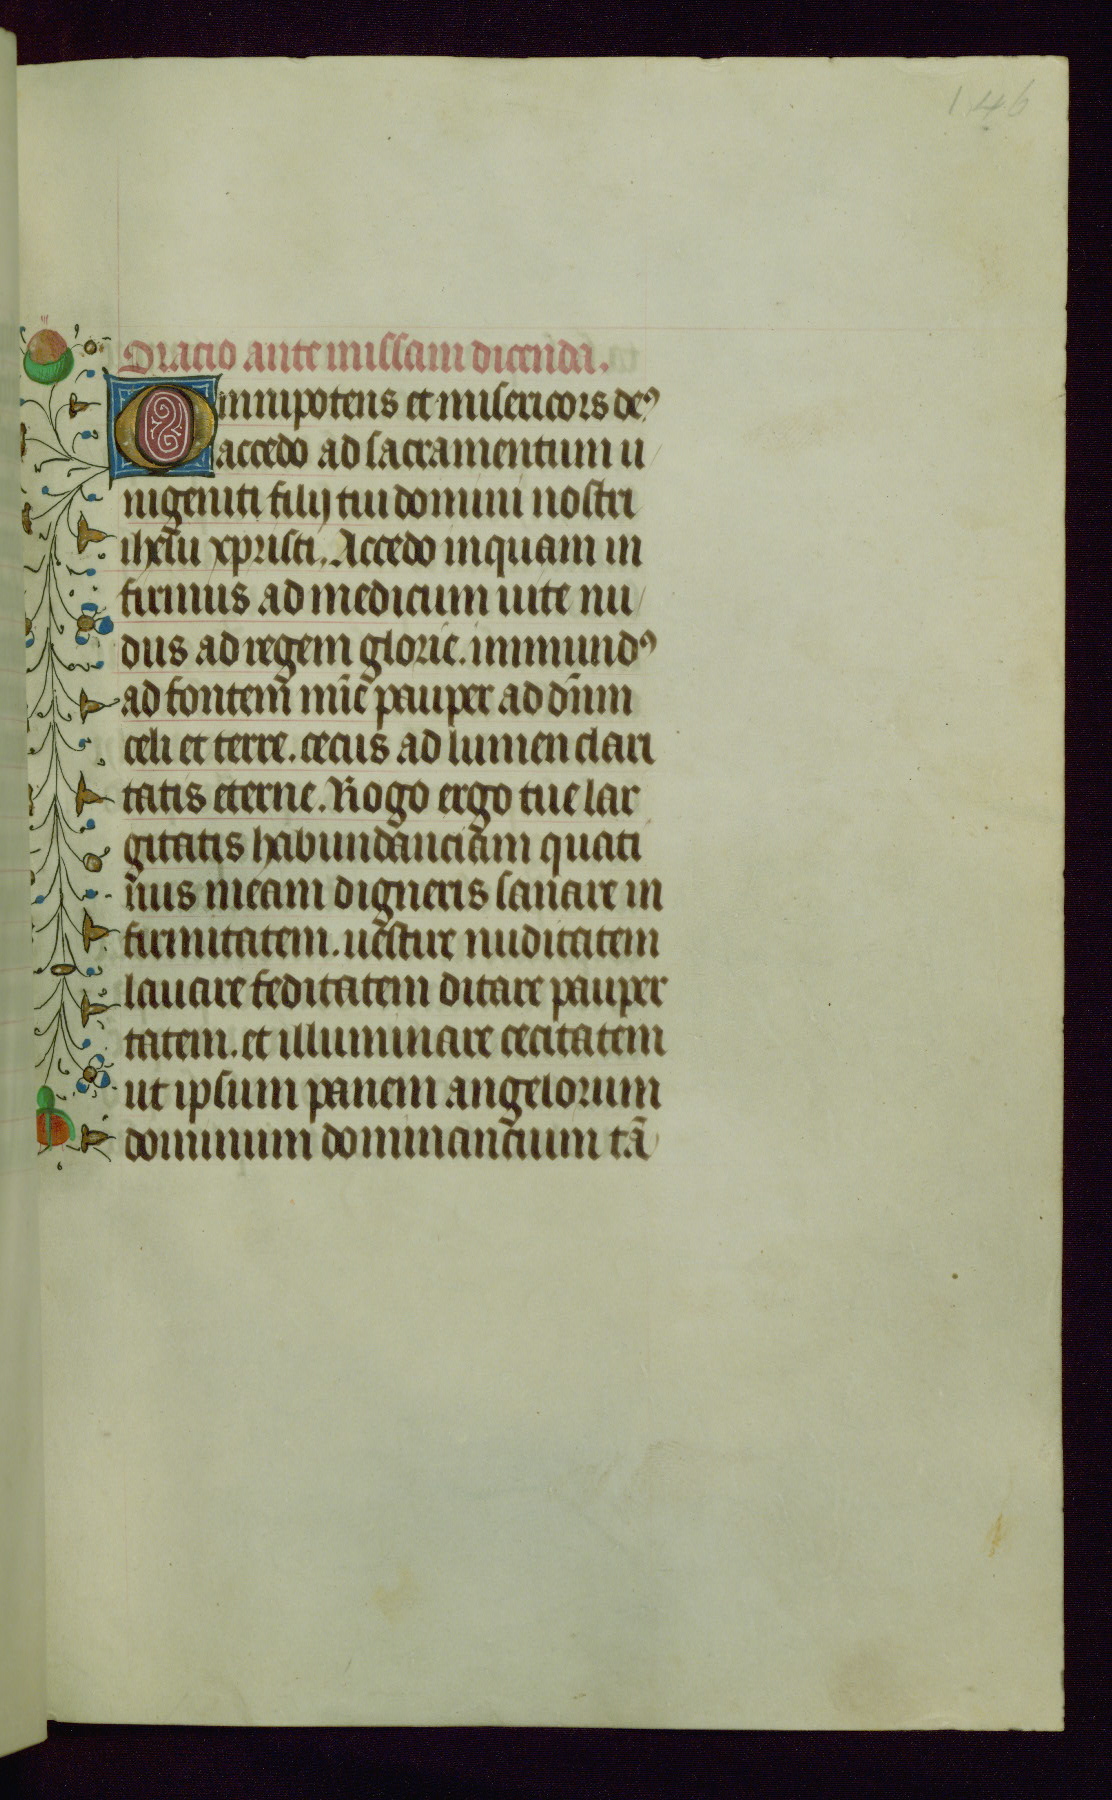 146
Oracio ante missam dicenda.
Omnipotens et misericors deꝰ
accedo ad sacramentum u
nigeniti filij tui domini nostri
ihesu xpristi. Accedo inquam in
firmus ad medicum uite nu
dus ad regem glorie. immundꝰ
ad fontem mīe pauper ad dn̄m
celi et terre. cecus ad lumen clari
tatis eterne. Rogo ergo tue lar
gitatis habundanciam quati
nus meam digneris sanare in
firmitatem. uestire nuditatem
lauare feditatem ditare pauper
tatem. et illuminare cecitatem
ut ipsum panem angelorum
dominum dominancium tā